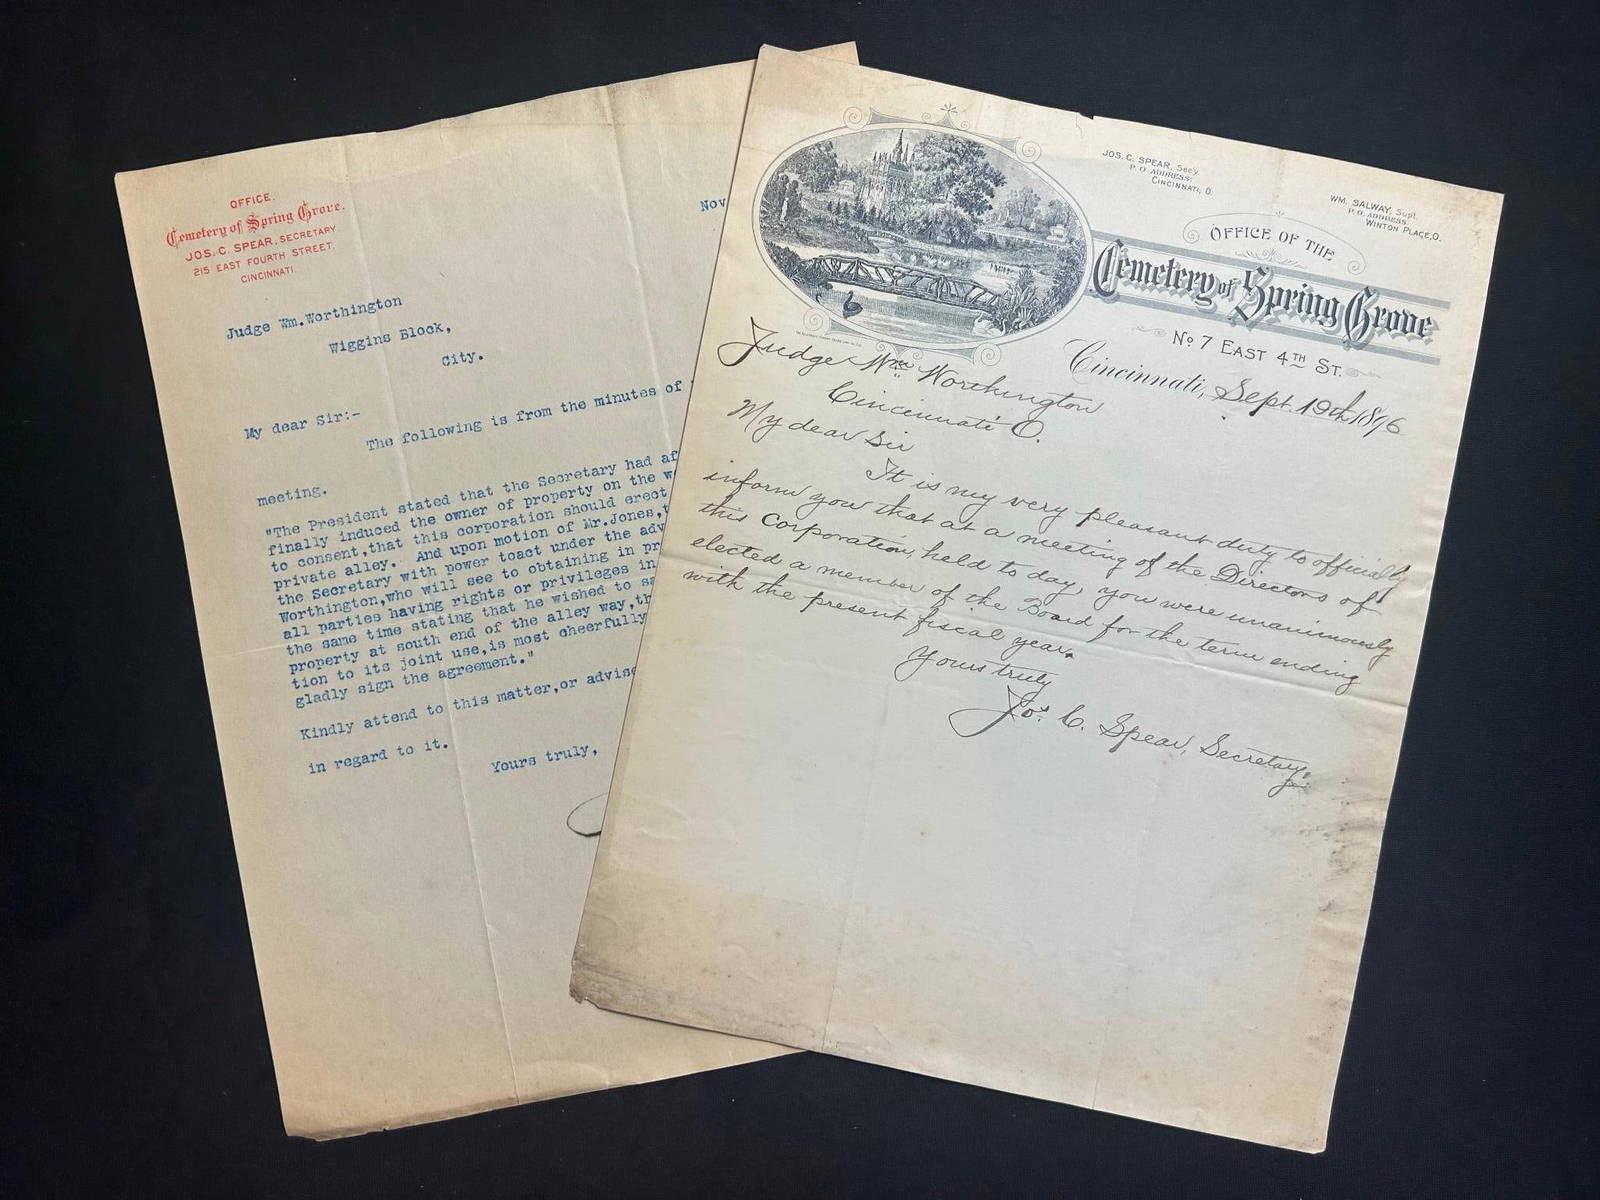 OFFICE.
Cemetery of Spring Grove.
JOS. C. SPEAR, SECRETARY
215 EAST FOURTH STREET,
CINCINNATI.
Nov
Judge Wm.Worthington
Wiggins Block,
City.
My dear Sir:-
The following is from the minutes of
meeting.
"The President stated that the Secretary had af
finally induced the owner of property on the w
to consent,that this corporation should erect
private alley. And upon motion of Mr.Jones,t
the Secretary with power toact under the adv
Worthington,who will see to obtaining in pr
all parties having rights or privileges in
the same time stating that he wished to sa
property at south end of the alley way,th
tion to its joint use,is most cheerfully
gladly sign the agreement."
Kindly attend to this matter,or advise
in regard to it.
Yours truly,
JOS. C. SPEAR, Sec'y.
P. O. ADDRESS:
CINCINNATI, O.
WM. SALWAY, Supt.
P. O. ADDRESS:
WINTON PLACE, O.
OFFICE OF THE
Cemetery of Spring Grove
No 7 EAST 4TH ST.
Cincinnati, Sept. 19th 1896
Judge Wm Worthington
Cincinnati O.
My dear Sir
It is my very pleasant duty to officially
inform you that at a meeting of the Directors of
this Corporation, held to day, you were unanimously
elected a member of the Board for the term ending
with the present fiscal year.
Yours truly
Jos. C. Spear, Secretary.